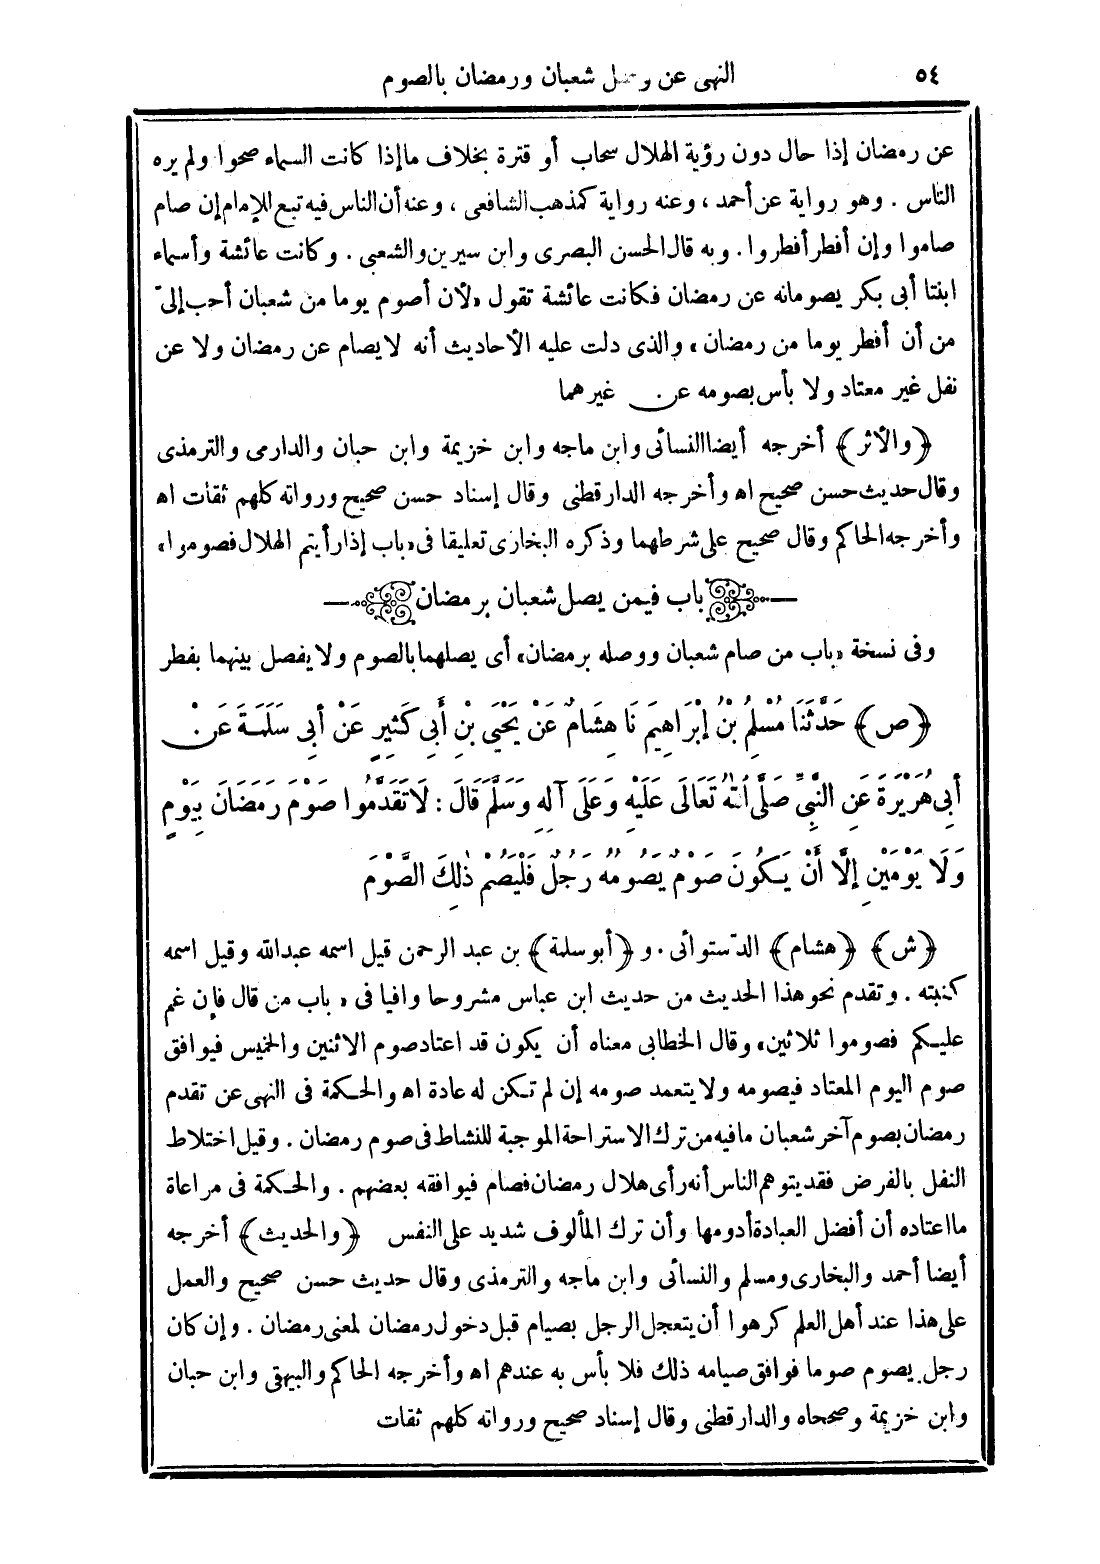 ٥٤
النهى عن وصل شعبان ورمضان بالصوم
عن رمضان إذا حال دون رؤية الهلال سحاب أو قترة بخلاف ما إذا كانت السماء صحوا ولم يره
الناس . وهو رواية عن أحمد ، وعنه رواية كمذهب الشافعى ، وعنه أن الناس فيه تبع للإمام إن صام
صاموا وإن أفطر أفطروا . وبه قال الحسن البصرى وابن سيرين والشعبى . وكانت عائشة وأسماء
ابنتا أبى بكر يصومانه عن رمضان فكانت عائشة تقول «لأن أصوم يوما من شعبان أحب إلىّ
من أن أفطر يوما من رمضان» والذى دلت عليه الأحاديث أنه لا يصام عن رمضان ولا عن
نفل غير معتاد ولا بأس بصومه عن غيرهما
﴿والأثر﴾ أخرجه أيضا النسائى وابن ماجه وابن خزيمة وابن حبان والدارمى والترمذى
وقال حديث حسن صحيح اه وأخرجه الدارقطنى وقال إسناد حسن صحيح ورواته كلهم ثقات اه
وأخرجه الحاكم وقال صحيح على شرطهما وذكره البخارى تعليقا فى «باب إذا رأيتم الهلال فصوموا»
— باب فيمن يصل شعبان برمضان —
وفى نسخة «باب من صام شعبان ووصله برمضان» أى يصلهما بالصوم ولا يفصل بينهما بفطر
﴿ص﴾ حَدَّثَنَا مُسْلِمُ بْنُ إِبْرَاهِيمَ نَا هِشَامٌ عَنْ يَحْيَى بْنِ أَبِى كَثِيرٍ عَنْ أَبِى سَلَمَةَ عَنْ
أَبِى هُرَيْرَةَ عَنِ النَّبِىِّ صَلَّى اللهُ تَعَالَى عَلَيْهِ وَعَلَى آلِهِ وَسَلَّمَ قَالَ : لَا تَقَدَّمُوا صَوْمَ رَمَضَانَ بِيَوْمٍ
وَلَا يَوْمَيْنِ إِلَّا أَنْ يَكُونَ صَوْمٌ يَصُومُهُ رَجُلٌ فَلْيَصُمْ ذٰلِكَ الصَّوْمَ
﴿ش﴾ ﴿هشام﴾ الدّستوائى . و ﴿أبو سلمة﴾ بن عبد الرحمن قيل اسمه عبد الله وقيل اسمه
كنيته . وتقدم نحو هذا الحديث من حديث ابن عباس مشروحا وافيا فى «باب من قال فإن غم
عليكم فصوموا ثلاثين» وقال الخطابى معناه أن يكون قد اعتاد صوم الاثنين والخميس فيوافق
صوم اليوم المعتاد فيصومه ولا يتعمد صومه إن لم تكن له عادة اه والحكمة فى النهى عن تقدم
رمضان بصوم آخر شعبان ما فيه من ترك الاستراحة الموجبة للنشاط فى صوم رمضان . وقيل اختلاط
النفل بالفرض فقد يتوهم الناس أنه رأى هلال رمضان فصام فيوافقه بعضهم . والحكمة فى مراعاة
ما اعتاده أن أفضل العبادة أدومها وأن ترك المألوف شديد على النفس ﴿والحديث﴾ أخرجه
أيضا أحمد والبخارى ومسلم والنسائى وابن ماجه والترمذى وقال حديث حسن صحيح والعمل
على هذا عند أهل العلم كرهوا أن يتعجل الرجل بصيام قبل دخول رمضان لمعنى رمضان . وإن كان
رجل يصوم صوما فوافق صيامه ذلك فلا بأس به عندهم اه وأخرجه الحاكم والبيهقى وابن حبان
وابن خزيمة وصححاه والدارقطنى وقال إسناد صحيح ورواته كلهم ثقات